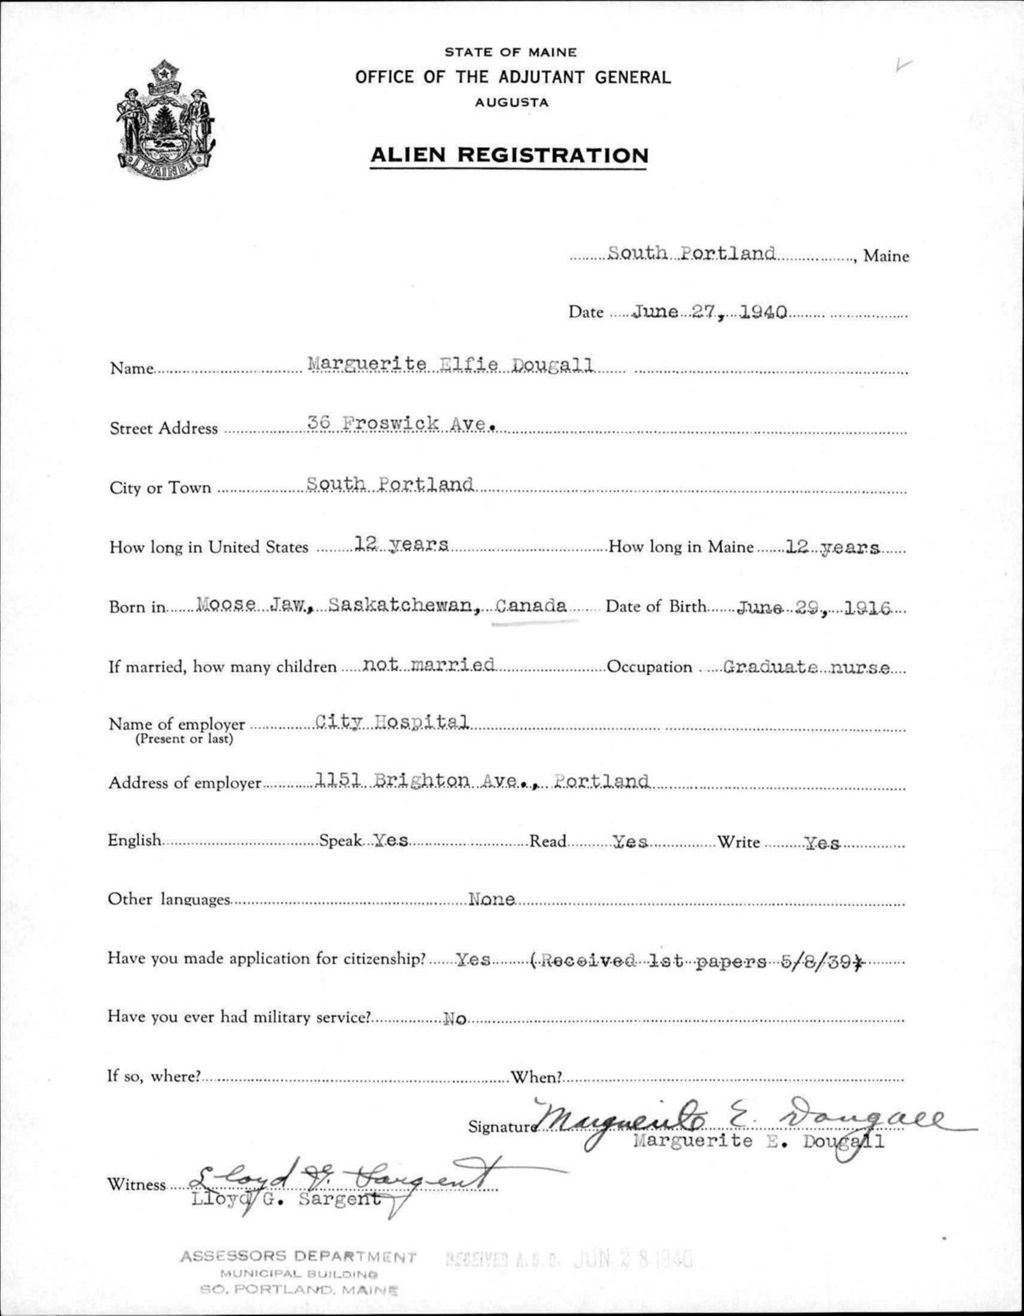 STATE OF MAINE
OFFICE OF THE ADJUTANT GENERAL
AUGUSTA
ALIEN REGISTRATION
MAINE
South Portland, Maine
Date June 27, 1940
Name Marguerite Elfie Dougall
Street Address 36 Froswick Ave.
City or Town South Portland
How long in United States 12 years How long in Maine 12 years
Born in Moose Jaw, Saskatchewan, Canada Date of Birth June 29, 1916
If married, how many children not married Occupation Graduate nurse
Name of employer City Hospital
(Present or last)
Address of employer 1151 Brighton Ave., Portland
English Speak Yes Read Yes Write Yes
Other languages None
Have you made application for citizenship? Yes (Received 1st papers 5/8/39)
Have you ever had military service? No
If so, where? When?
Signature Marguerite E. Dougall
Marguerite E. Dougall
Witness Lloyd G. Sargent
Lloyd G. Sargent
ASSESSORS DEPARTMENT
MUNICIPAL BUILDING
SO. PORTLAND, MAINE
RECEIVED A.G.O. JUN 28 1940